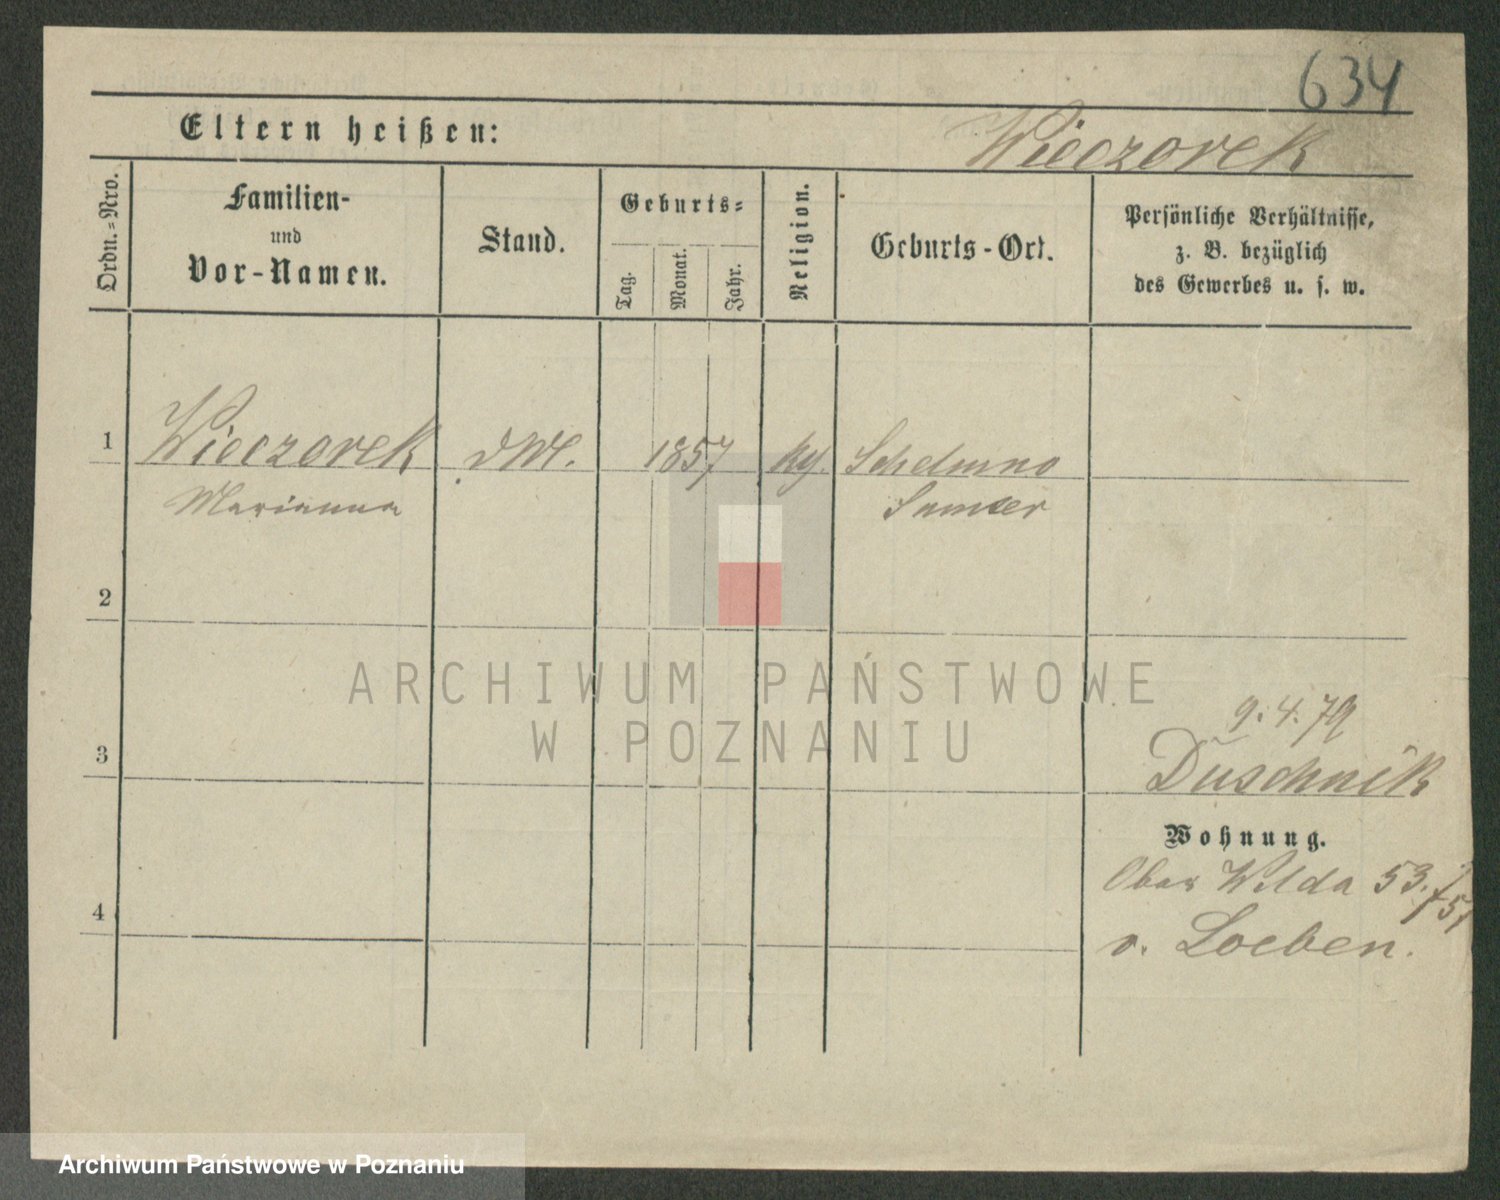 634
Eltern heißen:
Wieczorek
Ordn.=Nro.
Familien-
und
Vor-Namen.
Stand.
Geburts=
Tag.
Monat.
Jahr.
Religion.
Geburts-Ort.
Persönliche Verhältnisse,
z. B. bezüglich
des Gewerbes u. s. w.
1
Wieczorek
1857
Schelmno
Marianna
Samter
2
ARCHIWUM PAŃSTWOWE
W POZNANIU
9. 4. 79
3
Duschnik
Wohnung.
Ober Wilda 53./51
4
v. Loeben.
Archiwum Państwowe w Poznaniu